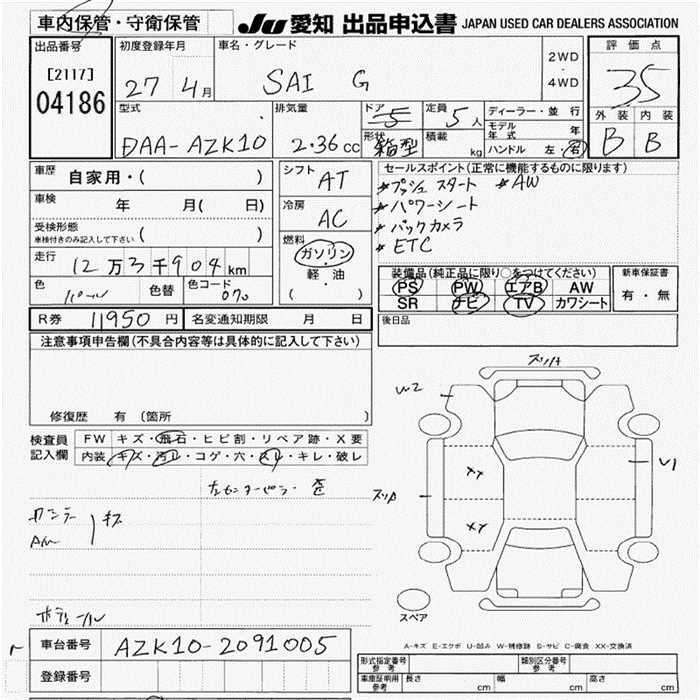 車内保管・守衛保管 JU 愛知 出品申込書 JAPAN USED CAR DEALERS ASSOCIATION
出品番号 初度登録年月 車名・グレード 2WD・4WD 評価点
[2117] 27 4月 SAI G 35
04186
型式 排気量 ドア 5 定員 5人 ディーラー・並行 外装 内装
DAA-AZK10 2.36cc 形状 箱型 積載 kg モデル年式 年 B B
ハンドル 左・右
車歴 自家用・( ) シフト AT セールスポイント(正常に機能するものに限ります)
車検 年 月( 日) 冷房 AC *プッシュスタート *AW
*パワーシート
受検形態 ( ) *バックカメラ
車検付きのみ記入して下さい 燃料 *ETC
走行 12万3千904km ガソリン・軽・油 ( )
装備品(純正品に限り○をつけてください) 新車保証書
色 パール 色替 色コード 070 PS PW エアB AW 有・無
SR ナビ TV カワシート
R券 11950円 名変通知期限 月 日 後日品
注意事項申告欄(不具合内容等は具体的に記入して下さい)
修復歴 有 (箇所
検査員記入欄 FW キズ・飛石・ヒビ割・リペア跡・X要
内装 キズ・汚レ・コゲ・穴・スレ・キレ・破レ
W2
XX
U1
XX
キズ
スペア
A-キズ E-エクボ U-凹み W-補修跡 S-サビ C-腐食 XX-交換済
車台番号 AZK10-2091005
登録番号
形式指定番号 参考 類別区分番号 参考
車庫証明用 参考 長さ cm 幅 cm 高さ cm